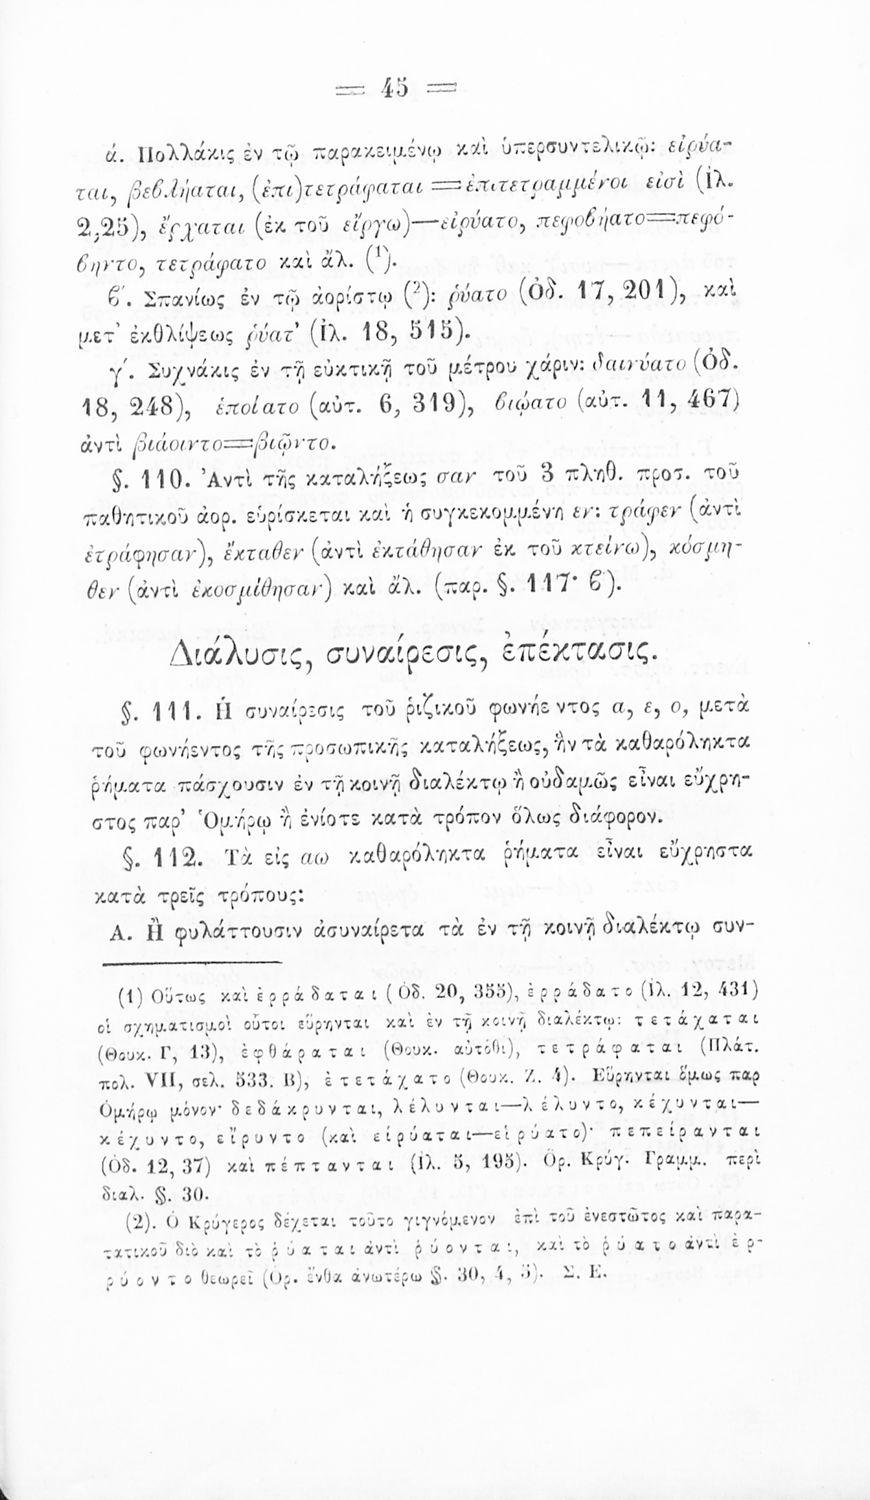 = 45 =
ά. Πολλάκις ἐν τῷ παρακειμένῳ καὶ ὑπερσυντελικῷ: εἰρύα-
ται, βεβλήαται, (ἐπι)τετράφαται = ἐπιτετραμμένοι εἰσὶ (ἰλ.
2,25), ἔρχαται (ἐκ τοῦ εἴργω)—εἰρύατο, πεφοβήατο=πεφό-
βηντο, τετράφατο καὶ ἄλ. (¹).
ϐ΄. Σπανίως ἐν τῷ ἀορίστῳ (²): ῥύατο (Ὀδ. 17, 201), καὶ
μετ᾽ ἐκθλίψεως ῥύατ᾽ (ἰλ. 18, 515).
γ΄. Συχνάκις ἐν τῇ εὐκτικῇ τοῦ μέτρου χάριν: δαινύατο (Ὀδ.
18, 248), ἑποίατο (αὐτ. 6, 319), βιῴατο (αὐτ. 11, 467)
ἀντὶ βιάοιντο=βιῷντο.
§. 110. Ἀντὶ τῆς καταλήξεως σαν τοῦ 3 πληθ. προσ. τοῦ
παθητικοῦ ἀορ. εὑρίσκεται καὶ ἡ συγκεκομμένη εν: τράφεν (ἀντὶ
ἐτράφησαν), ἔκταθεν (ἀντὶ ἐκτάθησαν ἐκ τοῦ κτείνω), κόσμη-
θεν (ἀντὶ ἐκοσμίθησαν) καὶ ἄλ. (παρ. §. 117· ϐ΄).
Διάλυσις, συναίρεσις, ἐπέκτασις.
§. 111. Ἡ συναίρεσις τοῦ ῥιζικοῦ φωνήε ντος α, ε, ο, μετὰ
τοῦ φωνήεντος τῆς προσωπικῆς καταλήξεως, ἣν τὰ καθαρόληκτα
ῥήματα πάσχουσιν ἐν τῇ κοινῇ διαλέκτῳ ἢ οὐδαμῶς εἶναι εὔχρη-
στος παρ᾽ Ὁμήρῳ ἢ ἐνίοτε κατὰ τρόπον ὅλως διάφορον.
§. 112. Τὰ εἰς αω καθαρόληκτα ῥήματα εἶναι εὔχρηστα
κατὰ τρεῖς τρόπους:
Α. Ἢ φυλάττουσιν ἀσυναίρετα τὰ ἐν τῇ κοινῇ διαλέκτῳ συν-
(1) Οὕτως καὶ ἐρράδαται (Ὀδ. 20, 355), ἐρράδατο (ἰλ. 12, 431)
οἱ σχηματισμοὶ οὗτοι εὕρηνται καὶ ἐν τῇ κοινῇ διαλέκτῳ: τετάχαται
(Θουκ. Γ, 13), ἐφθάραται (Θουκ. αὐτόθι), τετράφαται (Πλάτ.
πολ. VII, σελ. 533. Β), ἐτετάχατο (Θουκ. Ζ. 4). Εὕρηνται ὅμως παρ
Ὁμήρῳ μόνον· δεδάκρυνται, λέλυνται—λέλυντο, κέχυνται—
κέχυντο, εἴρυντο (καὶ εἰρύαται—εἰρύατο)· πεπείρανται
(Ὀδ. 12, 37) καὶ πέπτανται (ἰλ. 5, 195). Ὁρ. Κρύγ. Γραμμ. περὶ
διαλ. §. 30.
(2). Ὁ Κρύγερος δέχεται τοῦτο γιγνόμενον ἐπὶ τοῦ ἐνεστῶτος καὶ παρα-
τατικοῦ διὸ καὶ τὸ ῥύαται ἀντὶ ῥύονται, καὶ τὸ ῥύατο ἀντὶ ἐρ-
ρύοντο θεωρεῖ (Ὁρ. ἔνθα ἀνωτέρω §. 30, 4, 5). Σ. Ε.